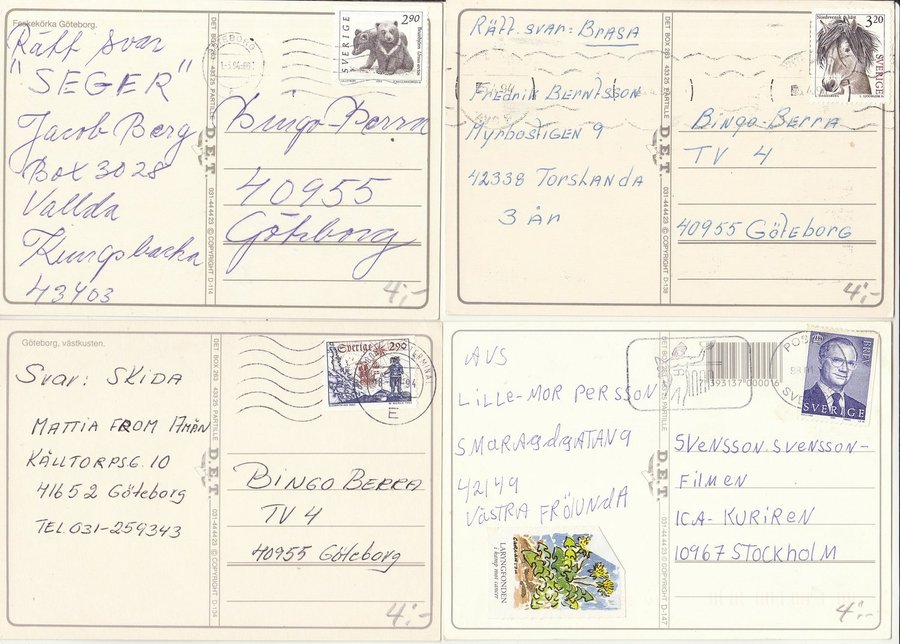 Feskekörka Göteborg.
Rätt svar
"SEGER"
Jacob Berg
Box 3028
Vallda
Kungsbacka
43403
DET BOX 283 433 25 PARTILLE
D.E.T.
031-44 44 23 © COPYRIGHT D-114
SVERIGE
2,90
Bingo-Berra
40955
Göteborg
4:-
Rätt svar: BRASA
Fredrik Berntsson
Myrbostigen 9
42338 Torslanda
3 år
DET BOX 283 433 25 PARTILLE
D.E.T.
031-44 44 23 © COPYRIGHT D-138
3,20
SVERIGE
Bingo-Berra
TV 4
40955 Göteborg
4:-
Göteborg, västkusten.
Svar: SKIDA
Mattia From Åmän
Källtorpsg. 10
41652 Göteborg
TEL 031-259343
DET BOX 283 433 25 PARTILLE
D.E.T.
031-44 44 23 © COPYRIGHT D-104
Sverige 2,90
BINGO BERRA
TV 4
40955 Göteborg
4:-
AVS
LILLE-MOR PERSSON
SMARAGDGATAN 9
42149
VÄSTRA FRÖLUNDA
LARYNGFONDEN
i kamp mot cancer
D.E.T.
031-44 44 23 © COPYRIGHT D-147
7393137000016
BREV
SVERIGE
SVENSSON SVENSSON-
FILMEN
ICA-KURIREN
10967 STOCKHOLM
4:-